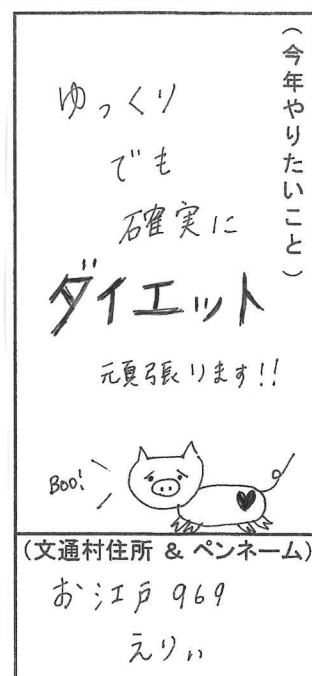 (今年やりたいこと)
ゆっくり
でも
確実に
ダイエット
頑張ります!!
BOO!
(文通村住所 & ペンネーム)
お江戸 969
えりぃ